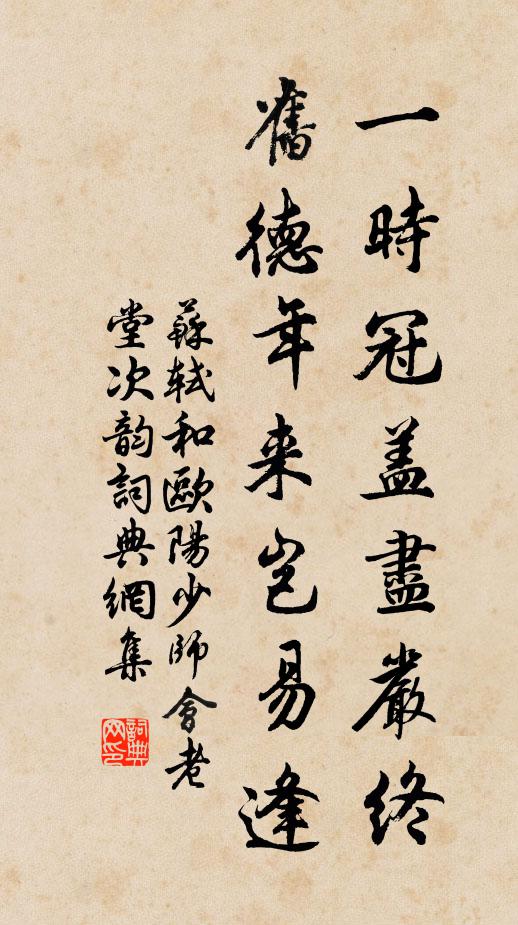 一時冠盖盡嚴終
舊德年来豈易逢
蘇軾和歐陽少師會老
堂次韵詞典網集
詞典網印